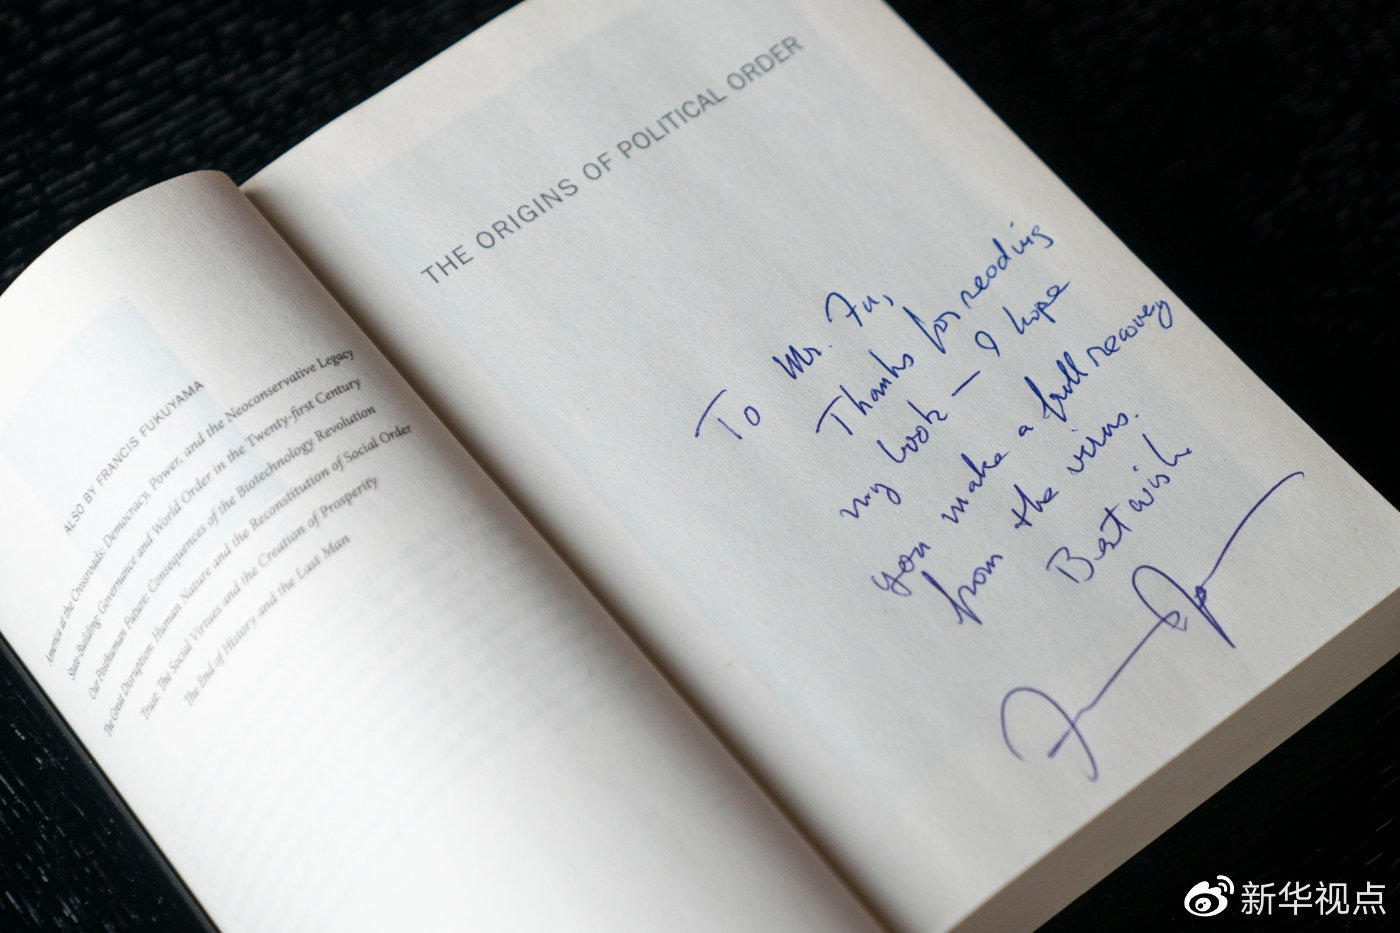 ALSO BY FRANCIS FUKUYAMA
America at the Crossroads: Democracy, Power, and the Neoconservative Legacy
State-Building: Governance and World Order in the Twenty-first Century
Our Posthuman Future: Consequences of the Biotechnology Revolution
The Great Disruption: Human Nature and the Reconstitution of Social Order
Trust: The Social Virtues and the Creation of Prosperity
The End of History and the Last Man
THE ORIGINS OF POLITICAL ORDER
To Mr. Fu,
Thanks for reading
my book — I hope
you make a full recovery
from the virus.
Best wish
新华视点